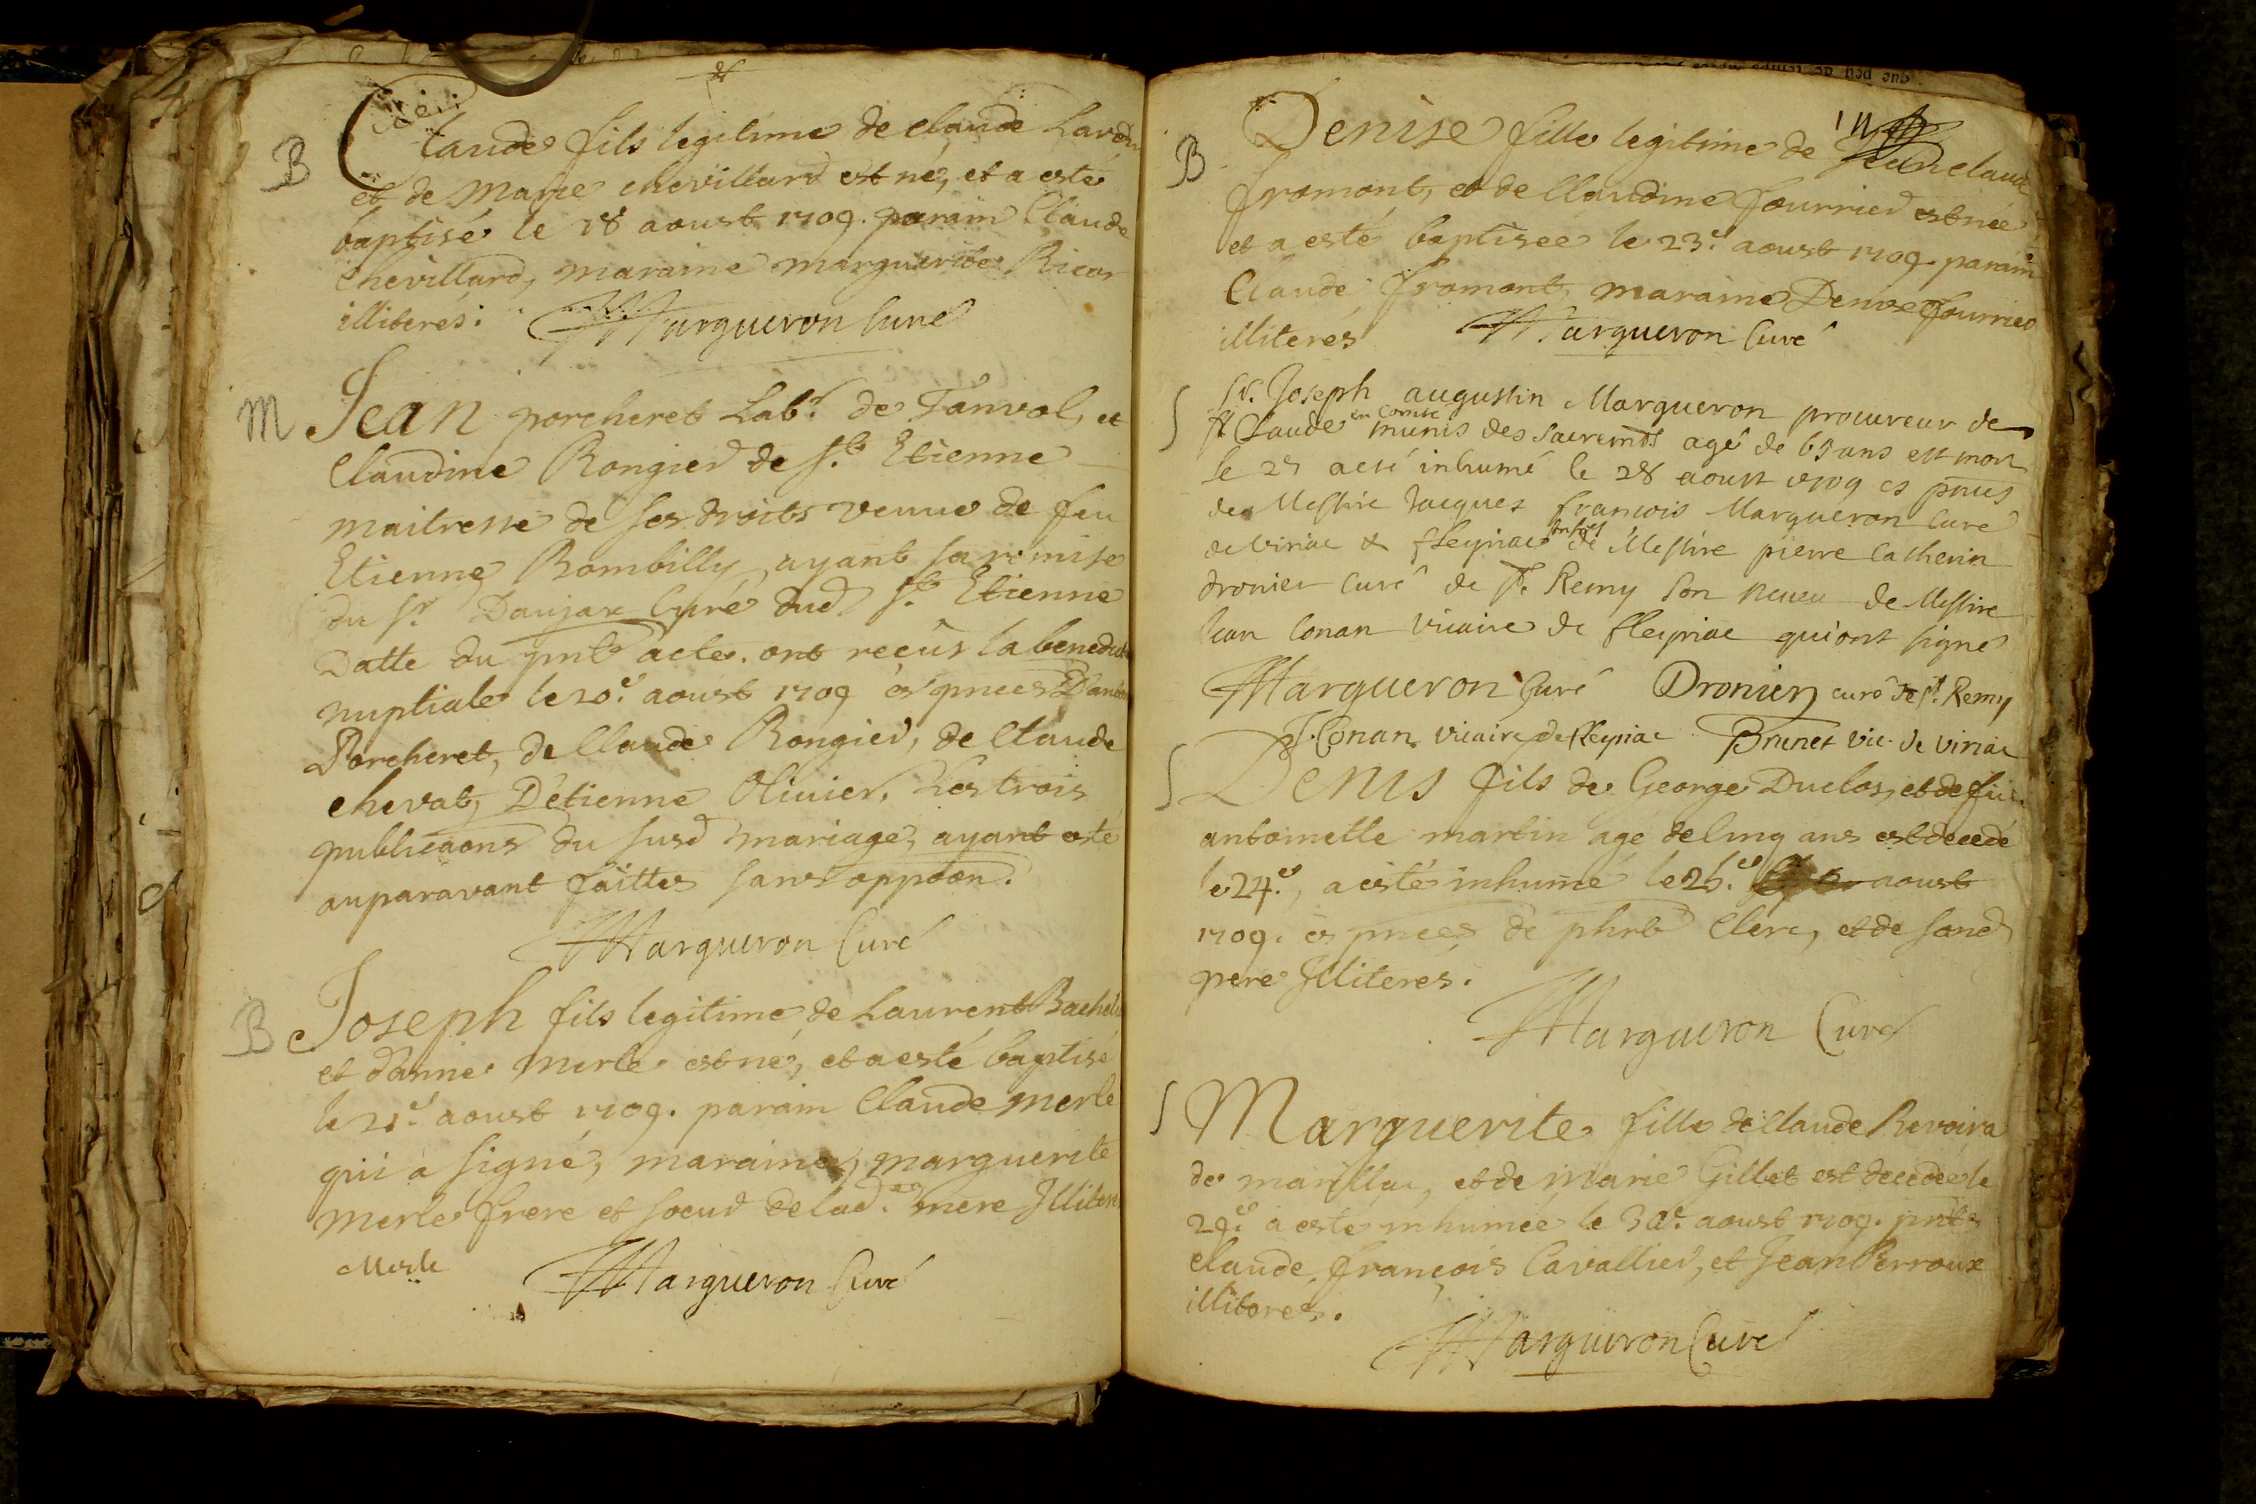 B
Claude fils legitime de Claude
et de Marie chevillard est né, et a esté
baptisé le 18 aoust 1709. parain Claude
Chevillard, maraine marguerite
illiterés. Margueron Curé
M
Jean porcheret Labr. de Tanvol, et
Claudine Rongier de St. Etienne
maitresse de ses droits veuve de feu
Etienne Rombilly, ayant sa remise
du Sr. Daujax Curé dud St. Etienne
Datte du pnt acte. ont recûs la
nuptiale le 20e. aoust 1709 és pnces
Porcheret, de Claude Rongier, de Claude
chevat, D'étienne Olivier. Les trois
publicaons du susd mariage, ayant esté
auparavant faittes sans oppoon.
Margueron Curé
B
Joseph fils legitime de Laurent
et d'anne merle est né, et a esté baptisé
le 21e. aoust 1709. parain Claude merle
qui a signé, maraine, marguerite
merle frere et soeur de lad. mere
Merle
Margueron Curé
B
Denise fille legitime de Jean claude
fromont, et de Claudine fourrier est née
et a esté baptisée le 23e. aoust 1709. parain
Claude fromont, maraine Denise fourrier
illiterés Margueron Curé
S
Sr. Joseph augustin Margueron procureur de
St Claude en Comté munis des sacremts agé de 65 ans est mort
le 27 a eté inhumé le 28 aoust 1709 es pnces
de Messire Jacques françois Margueron Curé
de viriac & fleyriac de Messire pierre Catherin
dronier curé de St. Remy son neveu de Messire
Jean Conan vicaire de fleyriac qui ont signé
Margueron Curé Dronier curé de St. Remy
J. Conan vicaire de fleyriac Brunet vic. de viriac
S
Denis fils de George Duclos, et de
antoinette martin agé de Cinq ans est decedé
le 24e., a esté inhumé le 25.e aoust
1709. és pnces de phrt Clerc, et de sond
pere Illiterés.
Margueron Curé
S
Marguerite fille de Claude
de marillac, et de Marie Gillet est decedée le
29e a esté inhumée le 30e. aoust 1709. pnts
Claude françois Cavallier, et Jean Perroux
illiteres.
Margueron Curé